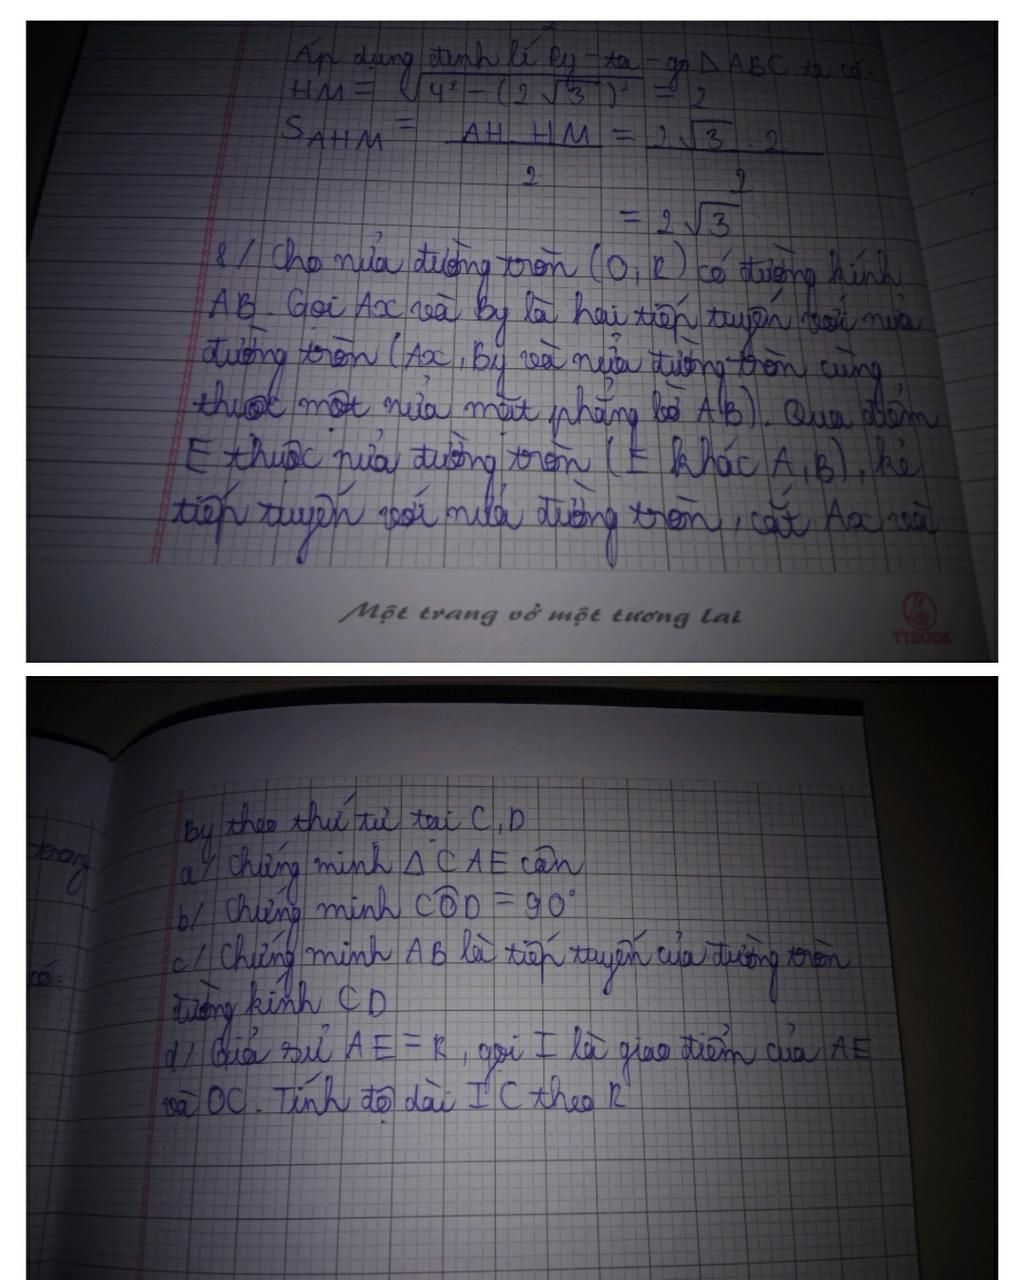 Áp dụng định lí Py-ta-go Δ ABC ta có.
HM = √4² - (2√3)² = 2
S AHM = AH. HM / 2 = 2√3 . 2 / 2
= 2√3
8/ Cho nửa đường tròn (O, R) có đường kính
AB. Gọi Ax và By là hai tiếp tuyến với nửa
đường tròn (Ax, By và nửa đường tròn cùng
thuộc một nửa mặt phẳng bờ AB). Qua điểm
E thuộc nửa đường tròn (E khác A, B), kẻ
tiếp tuyến với nửa đường tròn, cắt Ax và
Một trang vở một tương lai
TTBOOK
trong
có.
By theo thứ tự tại C, D
a/ Chứng minh Δ CAE cân
b/ Chứng minh CÔD = 90°
c/ Chứng minh AB là tiếp tuyến của đường tròn
đường kính CD
d/ Giả sử AE = R, gọi I là giao điểm của AE
và OC. Tính độ dài IC theo R